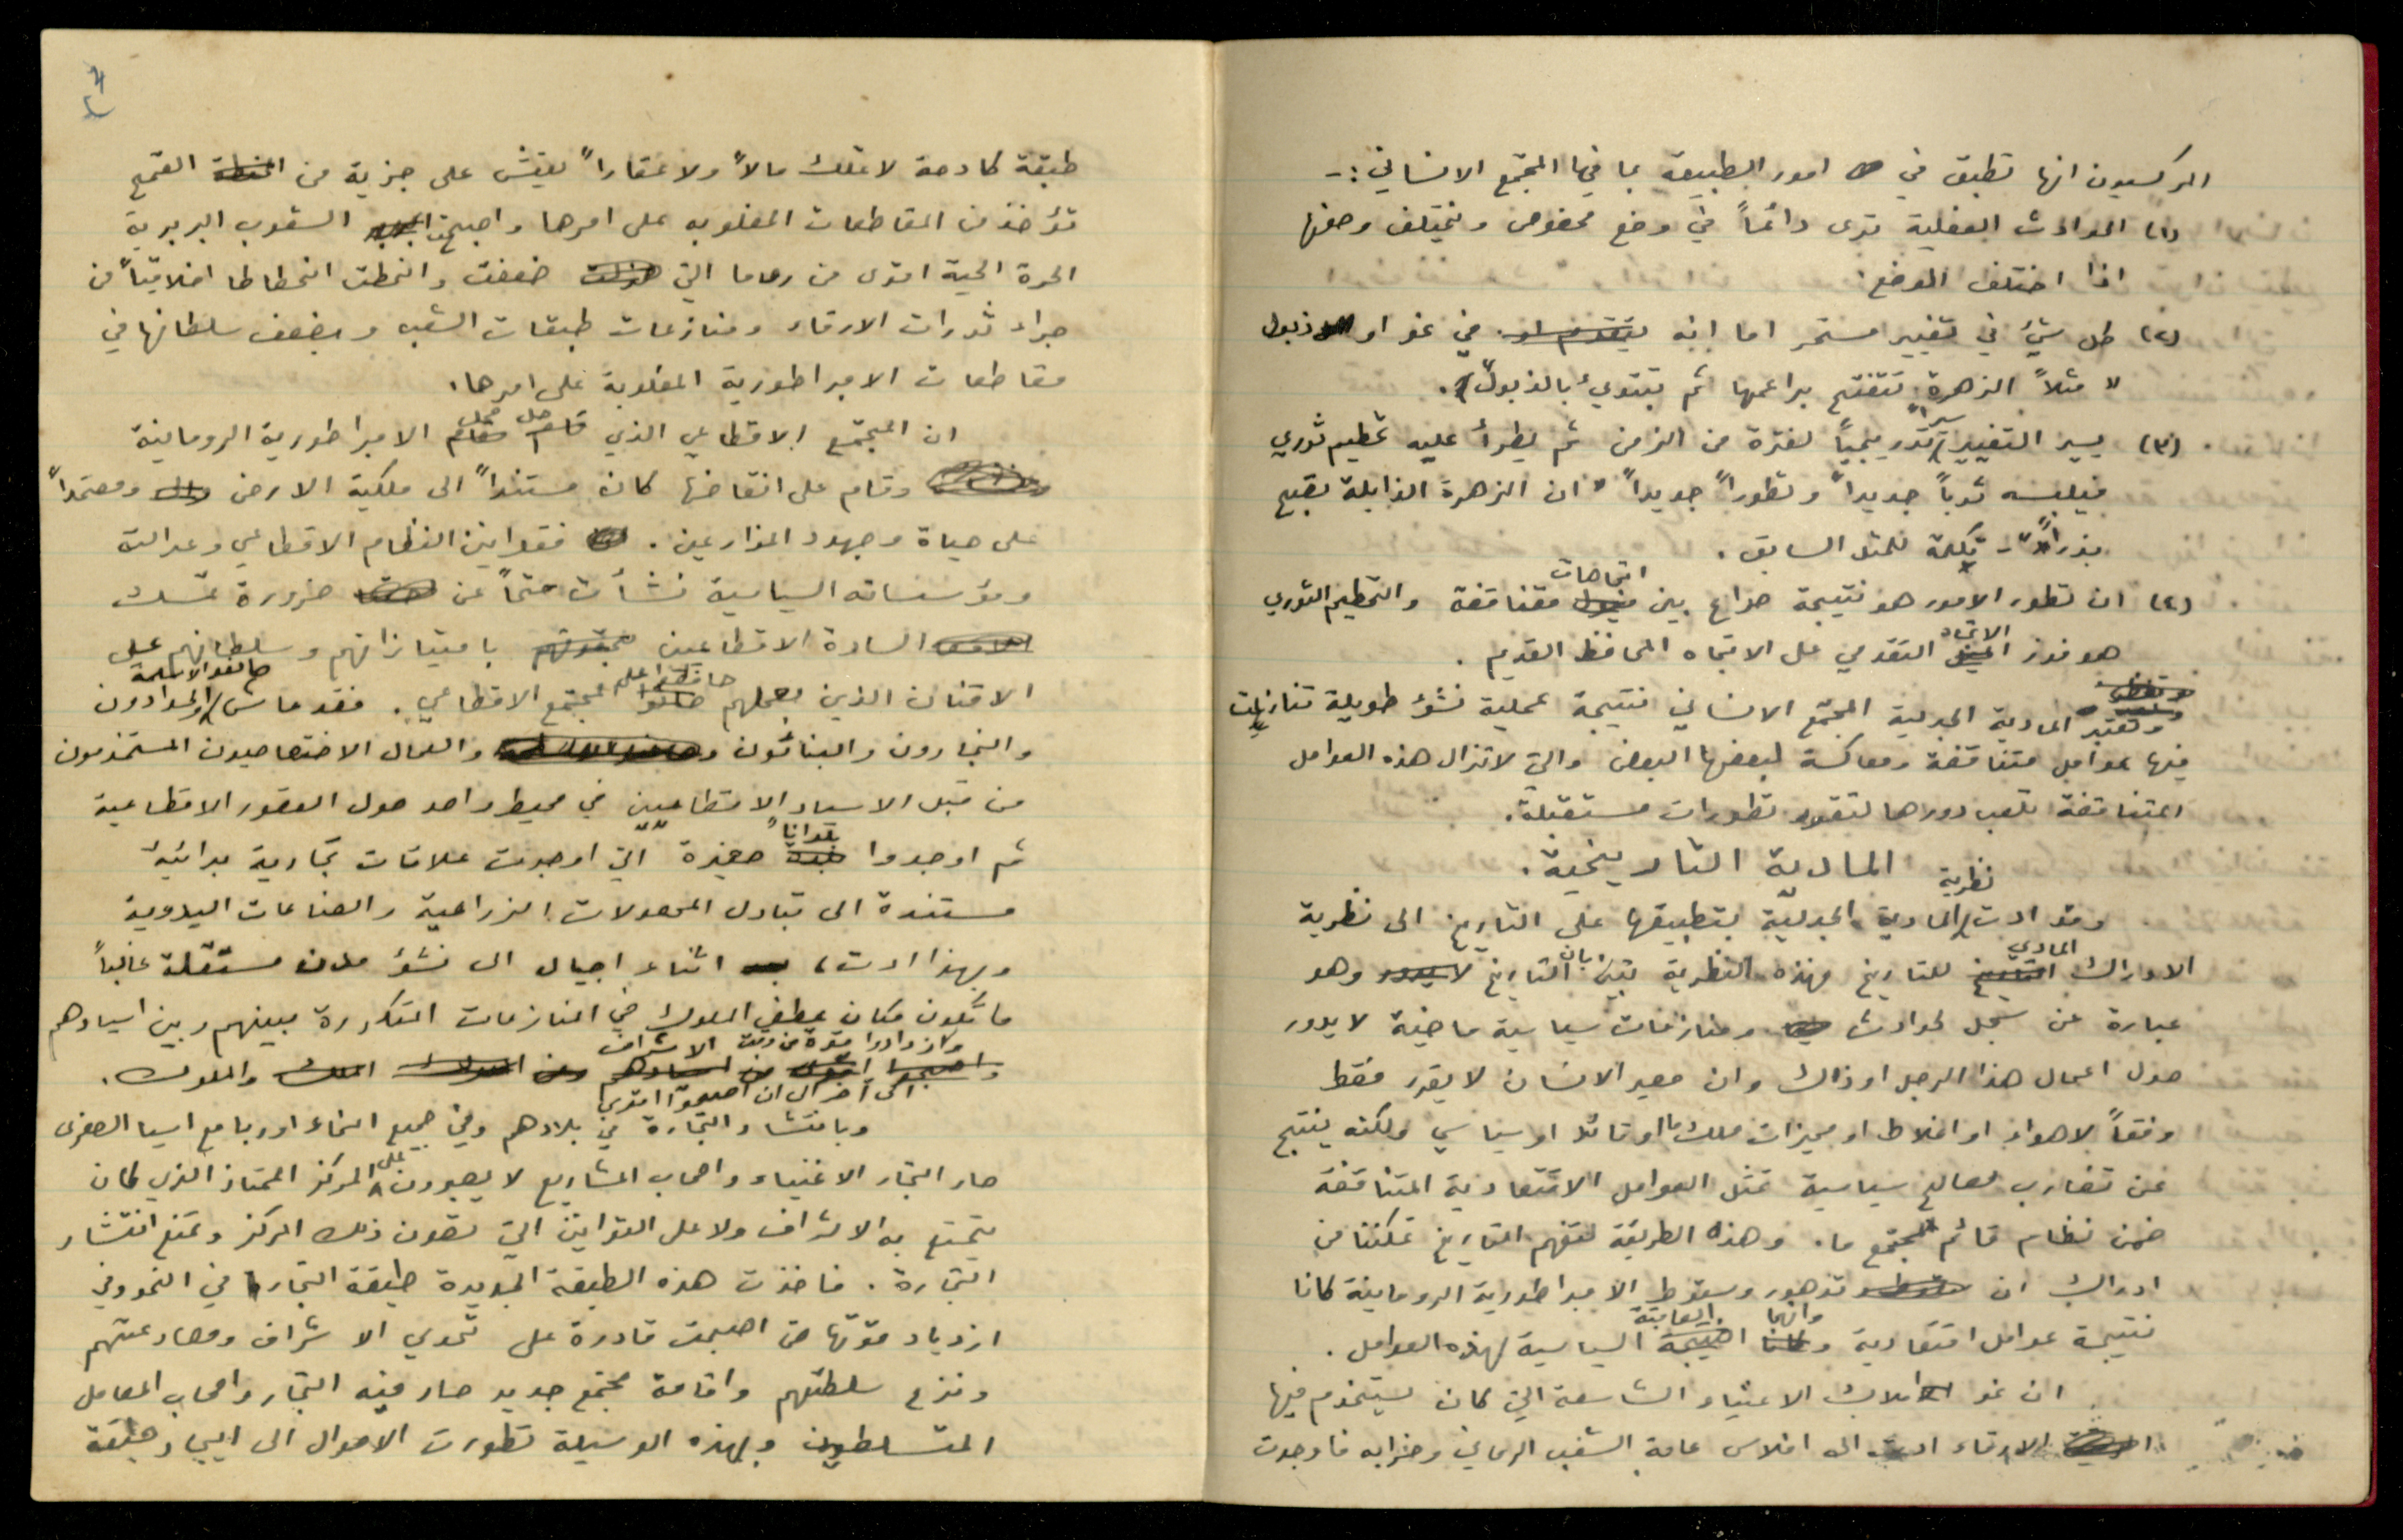 الماركسيون انها تطبق في امور الطبيعة بما فيها المجتمع الانساني :-
(١) الحوادث الفعلية ترى دائماً في وضع مخصوص وتختلف وصفها
اذا اختلف الوضع.
(٢) كل شيء في تغيير مستمر اما انه يتقدم او في نمو او ذبول
مثلاً الزهرة تتفتح براعمها ثم تبتدئ بالذبول.
(٣) يسير التغيير سيراً تدريجياً لفترة من الزمن ثم يطرأ عليه تحطيم ثوري
فيلبسه ثوباً جديداً وتطوراً جديداً " ان الزهرة الذابلة تصبح
بذراً" - تكملة للمثل السابق .
(٤) ان تطور الامور هو نتيجة صراع بين ميول اتجاهات متناقضة والتحطيم الثوري
هو فوز الاتجاه التقدمي على الاتجاه المحافظ القديم .
وتعتبر المادية الجدلية المجتمع الانساني نتيجة عملية نشؤ طويلة تنازعت
فيها عوامل متناقضة ومعاكسة لبعضها البعض والتي لا تزال هذه العوامل
المتناقضة تلعب دورها لتقود تطورات مستقبلة.
المادية التاريخية .
وقد ادت نظرية المادية الجدلية بتطبيقها على التاريخ الى نظرية
الادراك المادي للتاريخ فهذه النظرية تبين بان التاريخ لا يدور وهو
عبارة عن سجل لحوادث ومنازعات سياسية ماضية لا يدور
حول اعمال هذا الرجل او ذاك وان مصير الانسان لا يقرر فقط
وفقاً لاهواء او اغلاط او مميزات ملك ما او قائد او سياسي ولكنه ينتج
عن تضارب مصالح سياسية تمثل العوامل الاقتصادية المتناقضة
ضمن نظام قائم لمجتمع ما. وهذه الطريقة لتفهم التاريخ تمكننا من
ادراك ان تدهور وسقوط الامبراطورية الرومانية كانا
نتيجة عوامل اقتصادية وانهما النتيجة السياسية لهذه العوامل .
ان نمو املاك الاغنياء الشاسعة التي كان يستخدم فيها
الارقاء ادت الى افلاس عامة الشعب الروماني وخرابه فاوجدت
طبقة كادحة لا تملك مالاً ولا عقاراً تعيش على جزية من القمح
تؤخذ من المقاطعات المغلوبه على امرها واصبحت الشعوب البربرية
الحرة الحية اقوى من روما التي ضعفت وانحطت انحطاطا اخلاقياً من
جراء ثورات الارقاء ومنازعات طبقات الشعب وبضعف سلطانها في
مقاطعات الامبراطورية المغلوبة على امرها.
ان المجتمع الاقطاعي الذي حل محل الامبراطورية الرومانية
وقام على انقاضها كان مستنداً الى ملكية الارض ومعتمداً
على حياة وجهود المزارعين . فقوانين النظام الاقطاعي وعدالته
ومؤسساته السياسية نشأت حتماً عن ضرورة تمسك
السادة الاقطاعيين بامتيازاتهم وسلطانهم على
الاقنان الذين بعملهم حافظوا على المجتمع الاقطاعي . فقد عاش صانعوا الاسلحة والحدادون
والنجارون والبنائون والعمال الاختصاصيون المستخدمون
من قبل الاسياد الاقطاعيين في محيط واحد حول القصور الاقطاعية
ثم اوجدوا بلداناً صغيرة التي اوجدت علاقات تجارية بدائية
مستندة الى تبادل المحصولات الزراعية والصناعات اليدوية
وبهذا ادت، اثناء اجيال الى نشؤ مدن مستقلة غالباً
ما تكون مكان عطف الملوك في المنازعات المتكررة بينهم وبين اسيادهم
وازدادوا قوة من دون الاشراف
الى آخر الى ان اصبحوا اقوى من الملك والملوك.
وبانتشار التجارة في بلادهم وفي جميع انحاء اوربا مع اسيا الصغرى
صار التجار الاغنياء واصحاب المشاريع لا يصبرون على المركز الممتاز الذي كان
يتمتع به الاشراف ولا على القوانين التي تصون ذلك المركز وتمنع انتشار
التجارة . فاخذت هذه الطبقة الجديدة طبقة التجار في النمو وفي
ازدياد قوتها حتى اصبحت قادرة على تحدي الاشراف ومصارعتهم
ونزع سلطتهم واقامة مجتمع جديد صار فيه التجار واصحاب المعامل
المتسلطين وبهذه الوسيلة تطورت الاحوال الى ايجاد طبقة